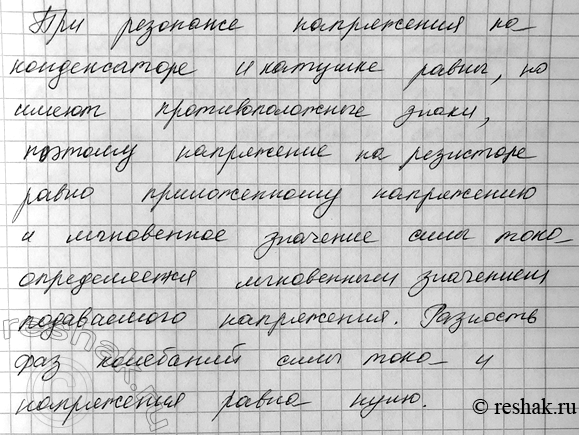 При резонансе напряжения на
конденсаторе и катушке равны, но
имеют противоположные знаки,
поэтому напряжение на резисторе
равно приложенному напряжению
и мгновенное значение силы тока
определяется мгновенным значением
подаваемого напряжения. Разность
фаз колебаний силы тока и
напряжения равна нулю.
reshak.ru
© reshak.ru